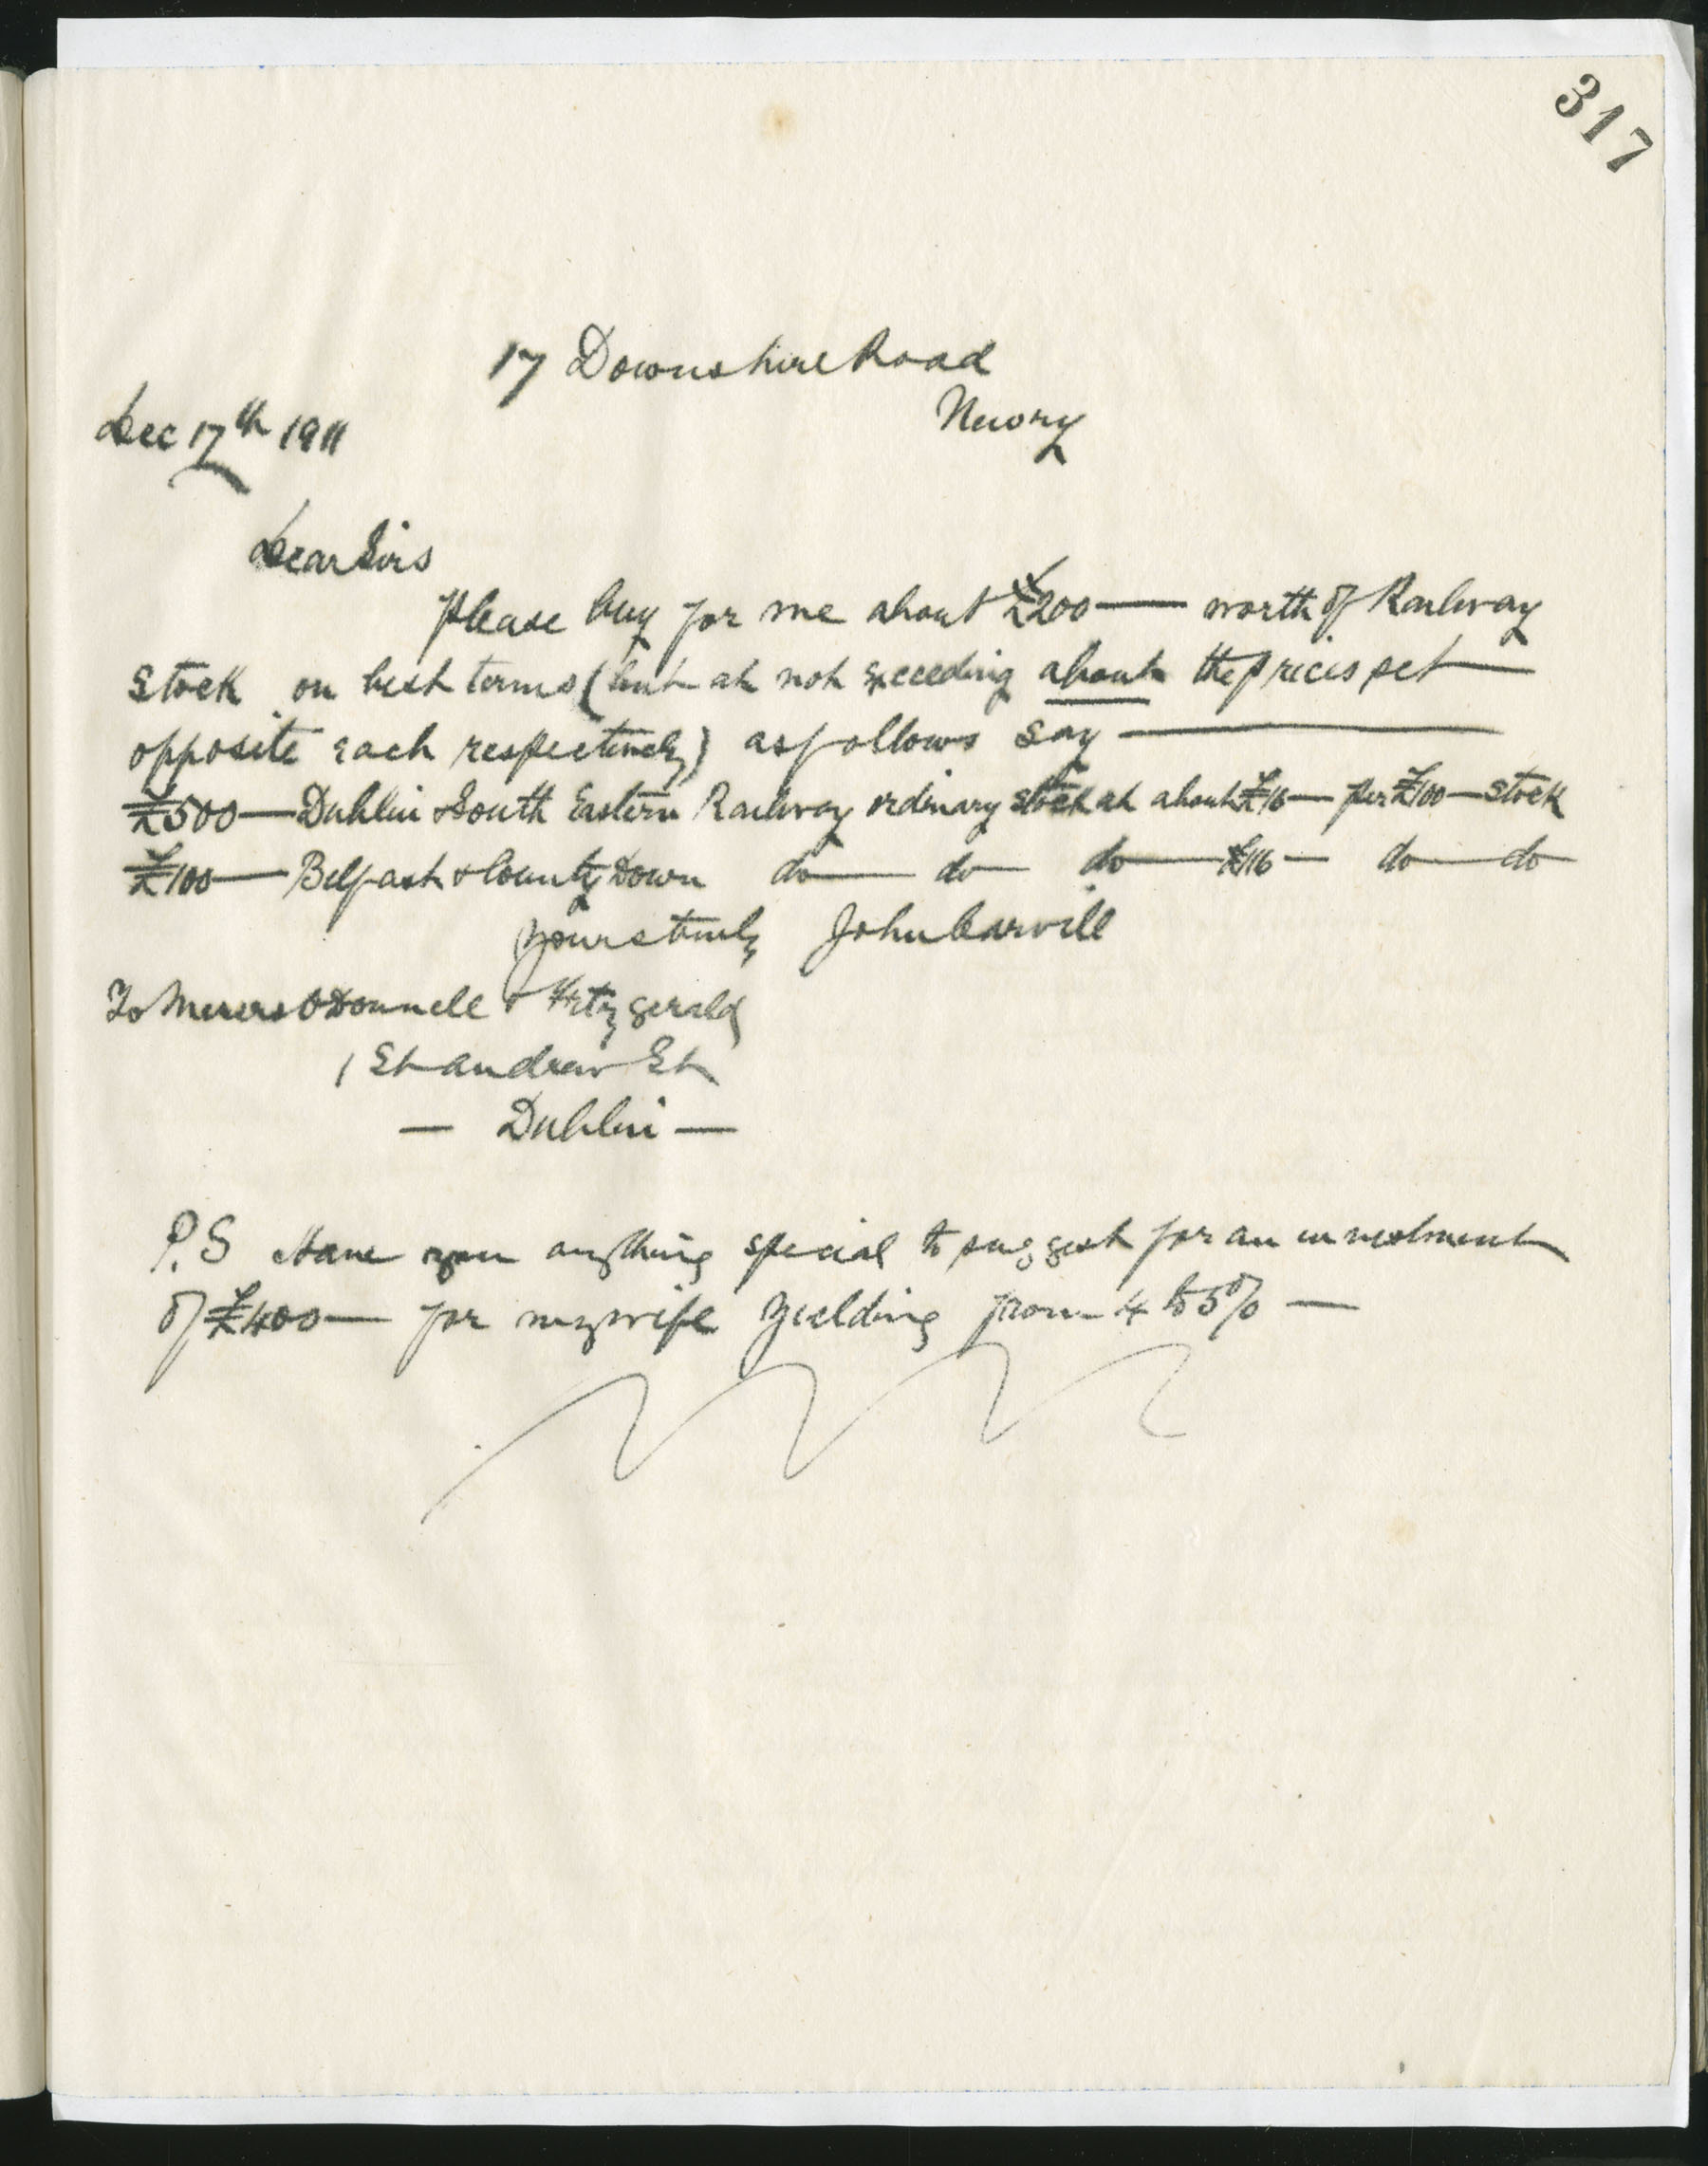 317
17 Downshire Road
Newry
Dec 17th 1911
Dear Sirs
Please buy for me about £200 — worth of Railway
Stock on best terms (but at not exceeding about the prices set —
opposite each respectively) as follows say —
£500 — Dublin & South Eastern Railway ordinary stock at about £16 — per £100 — stock
£100 — Belfast & County Down do — do — do — £116 — do — do
Yours truly John Carvill
To Messrs O'Donnell & Fitzgerald
1 St Andrew St
— Dublin —
P.S Have you anything special to suggest for an investment
of £400 — for my wife yielding from 4 to 5% —